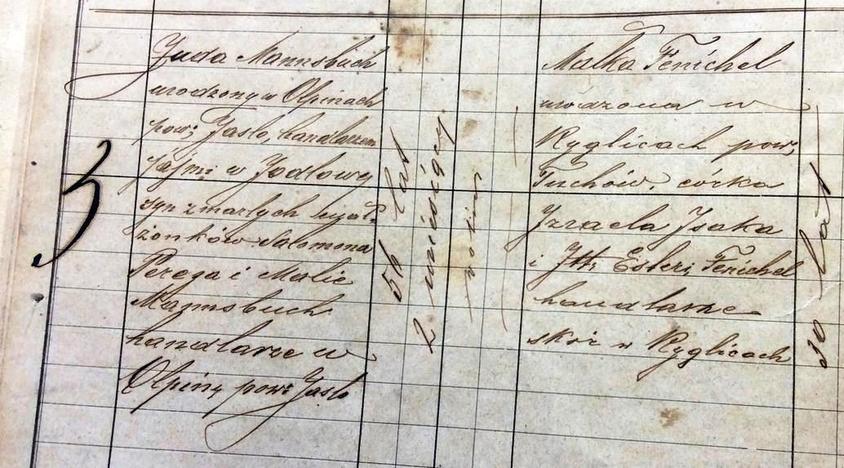 3
Juda Mannsbach
urodzony w Olpinach
pow. Jasło, handlarzem
w Jodłowy
syn zmarłych
żonków Salomona
Perega i Malie
Mannsbuch
handlarze w
Olpiny pow. Jasło
56 lat
2 miesięcy
Malka Fenichel
urodzona w
Ryglicach pow.
Tuchów, córka
Izraela Isaka
i Estery Fenichel
handlarze
skór w Ryglicach
30 lat